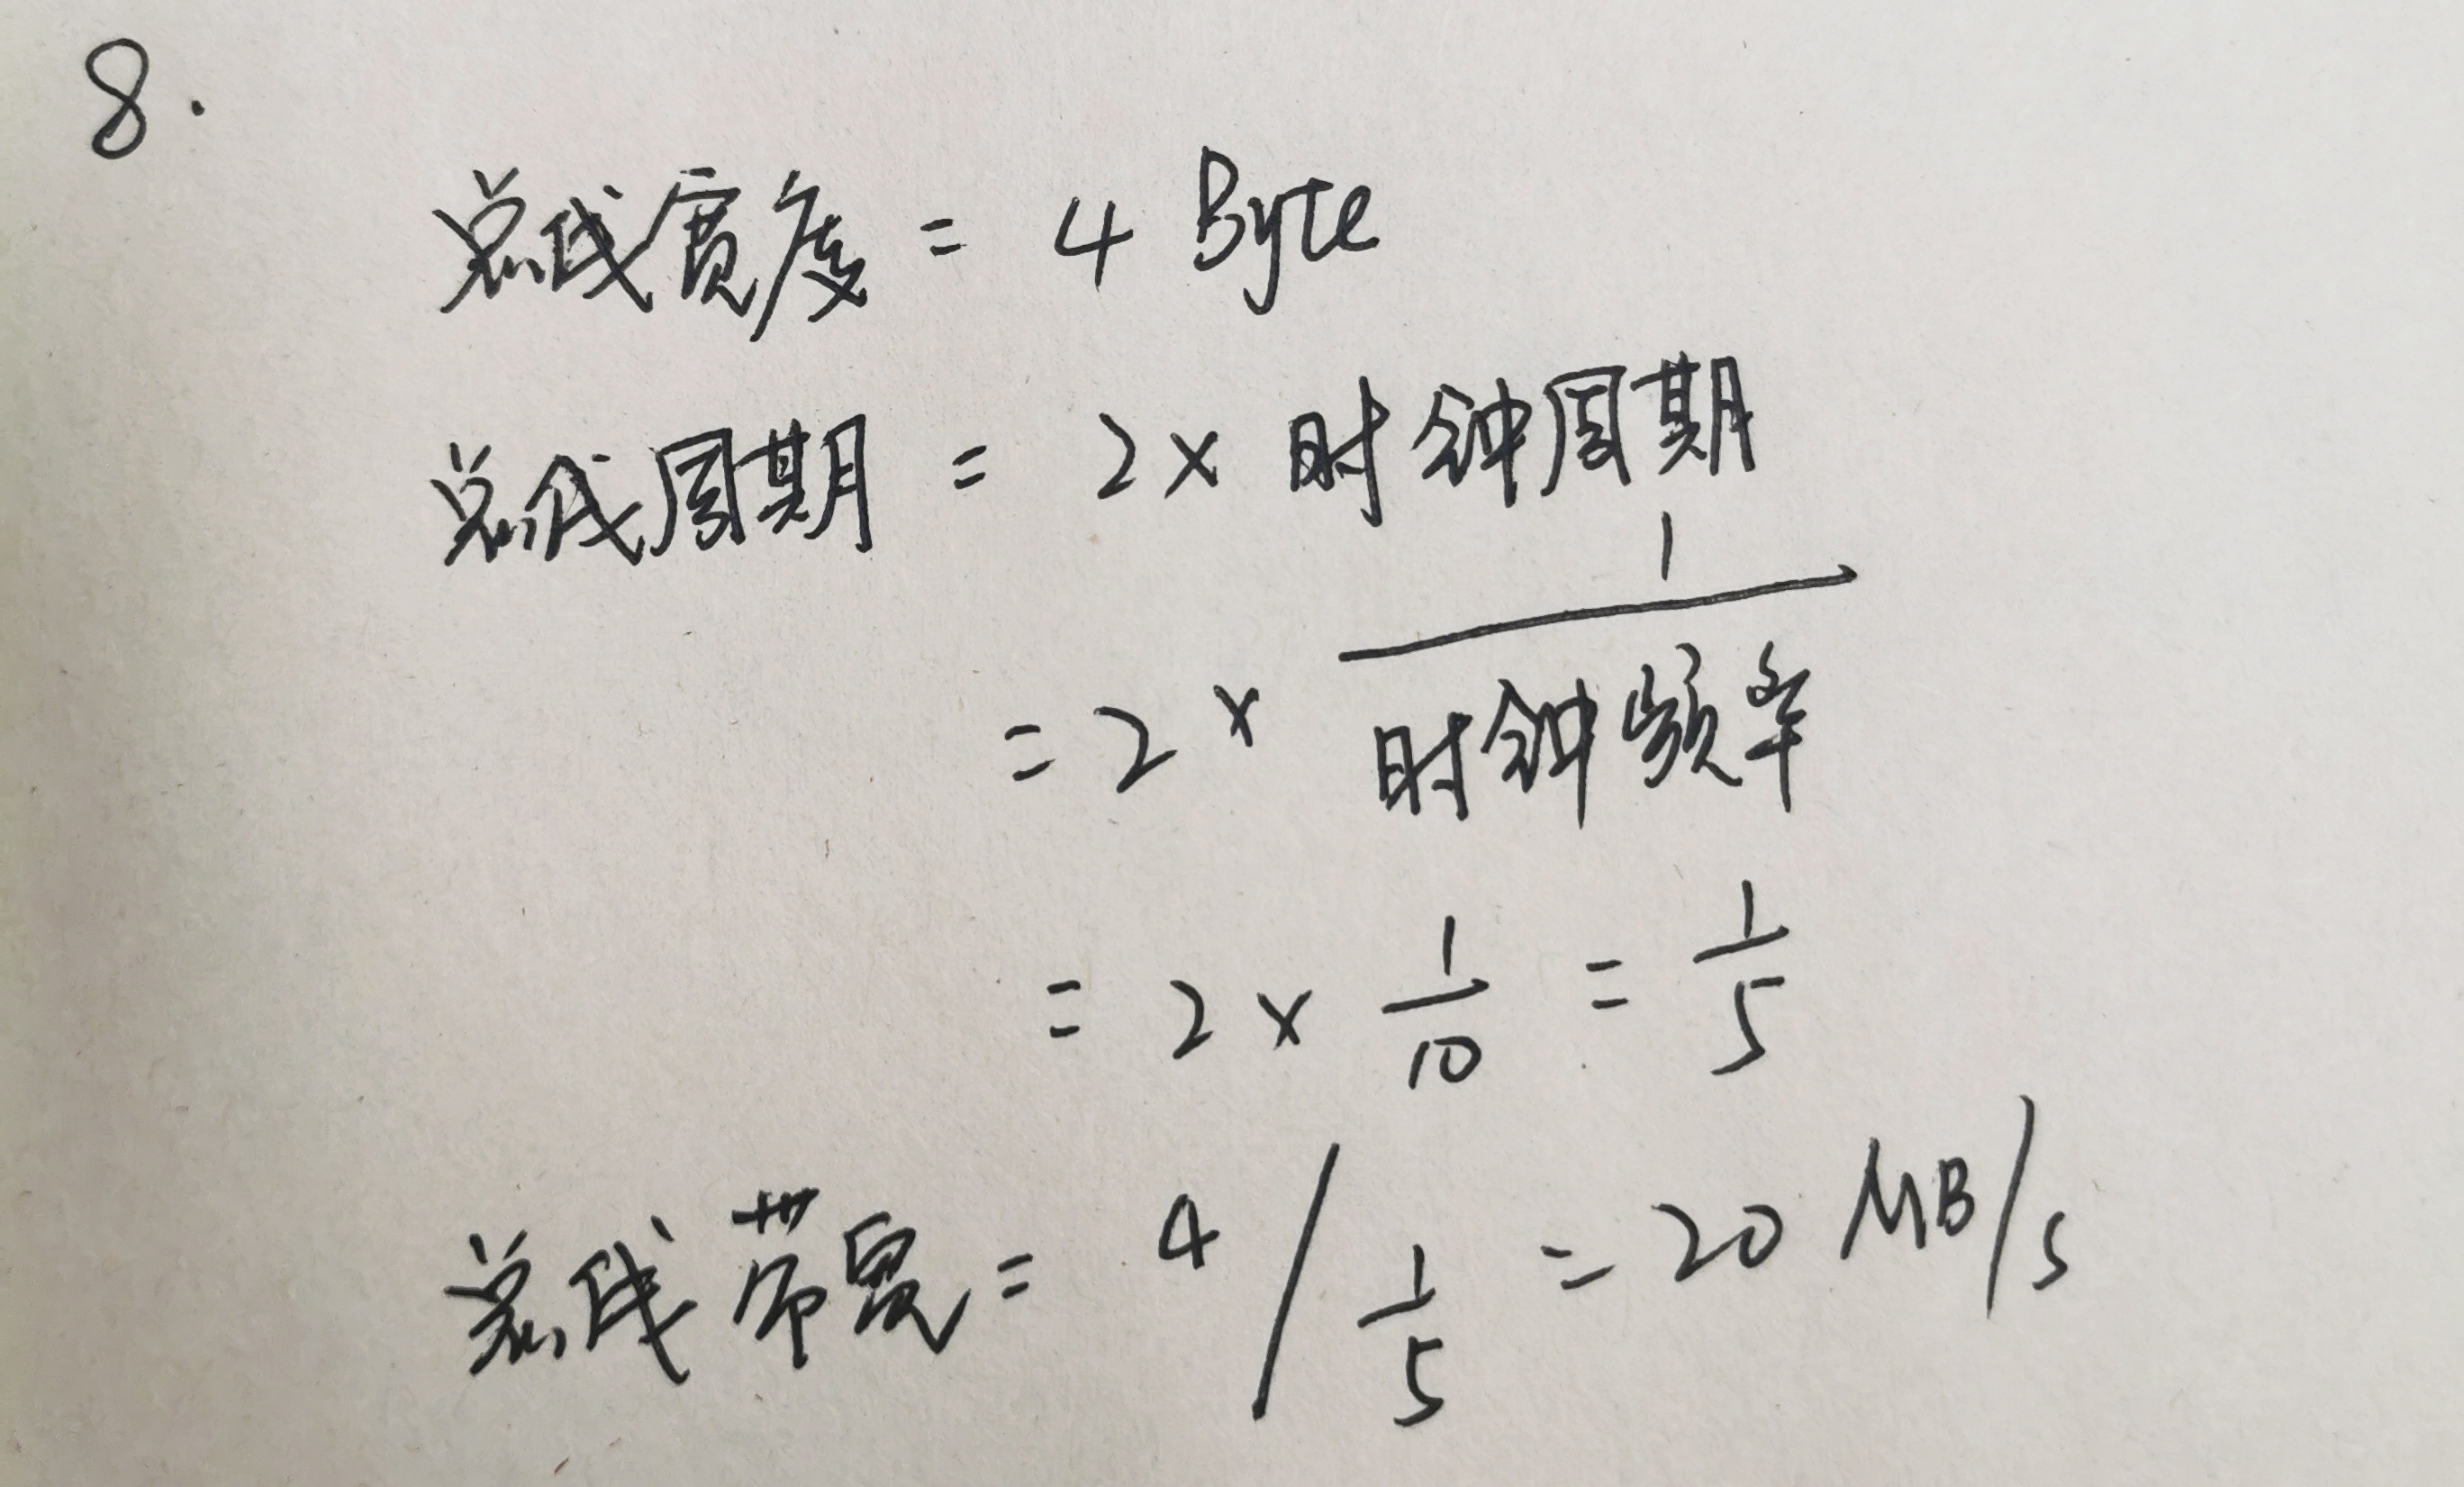 8.
总线宽度 = 4 Byte
总线周期 = 2 × 时钟周期
= 2 × 1/时钟频率
= 2 × 1/10 = 1/5
总线带宽 = 4 / 1/5 = 20 MB/s